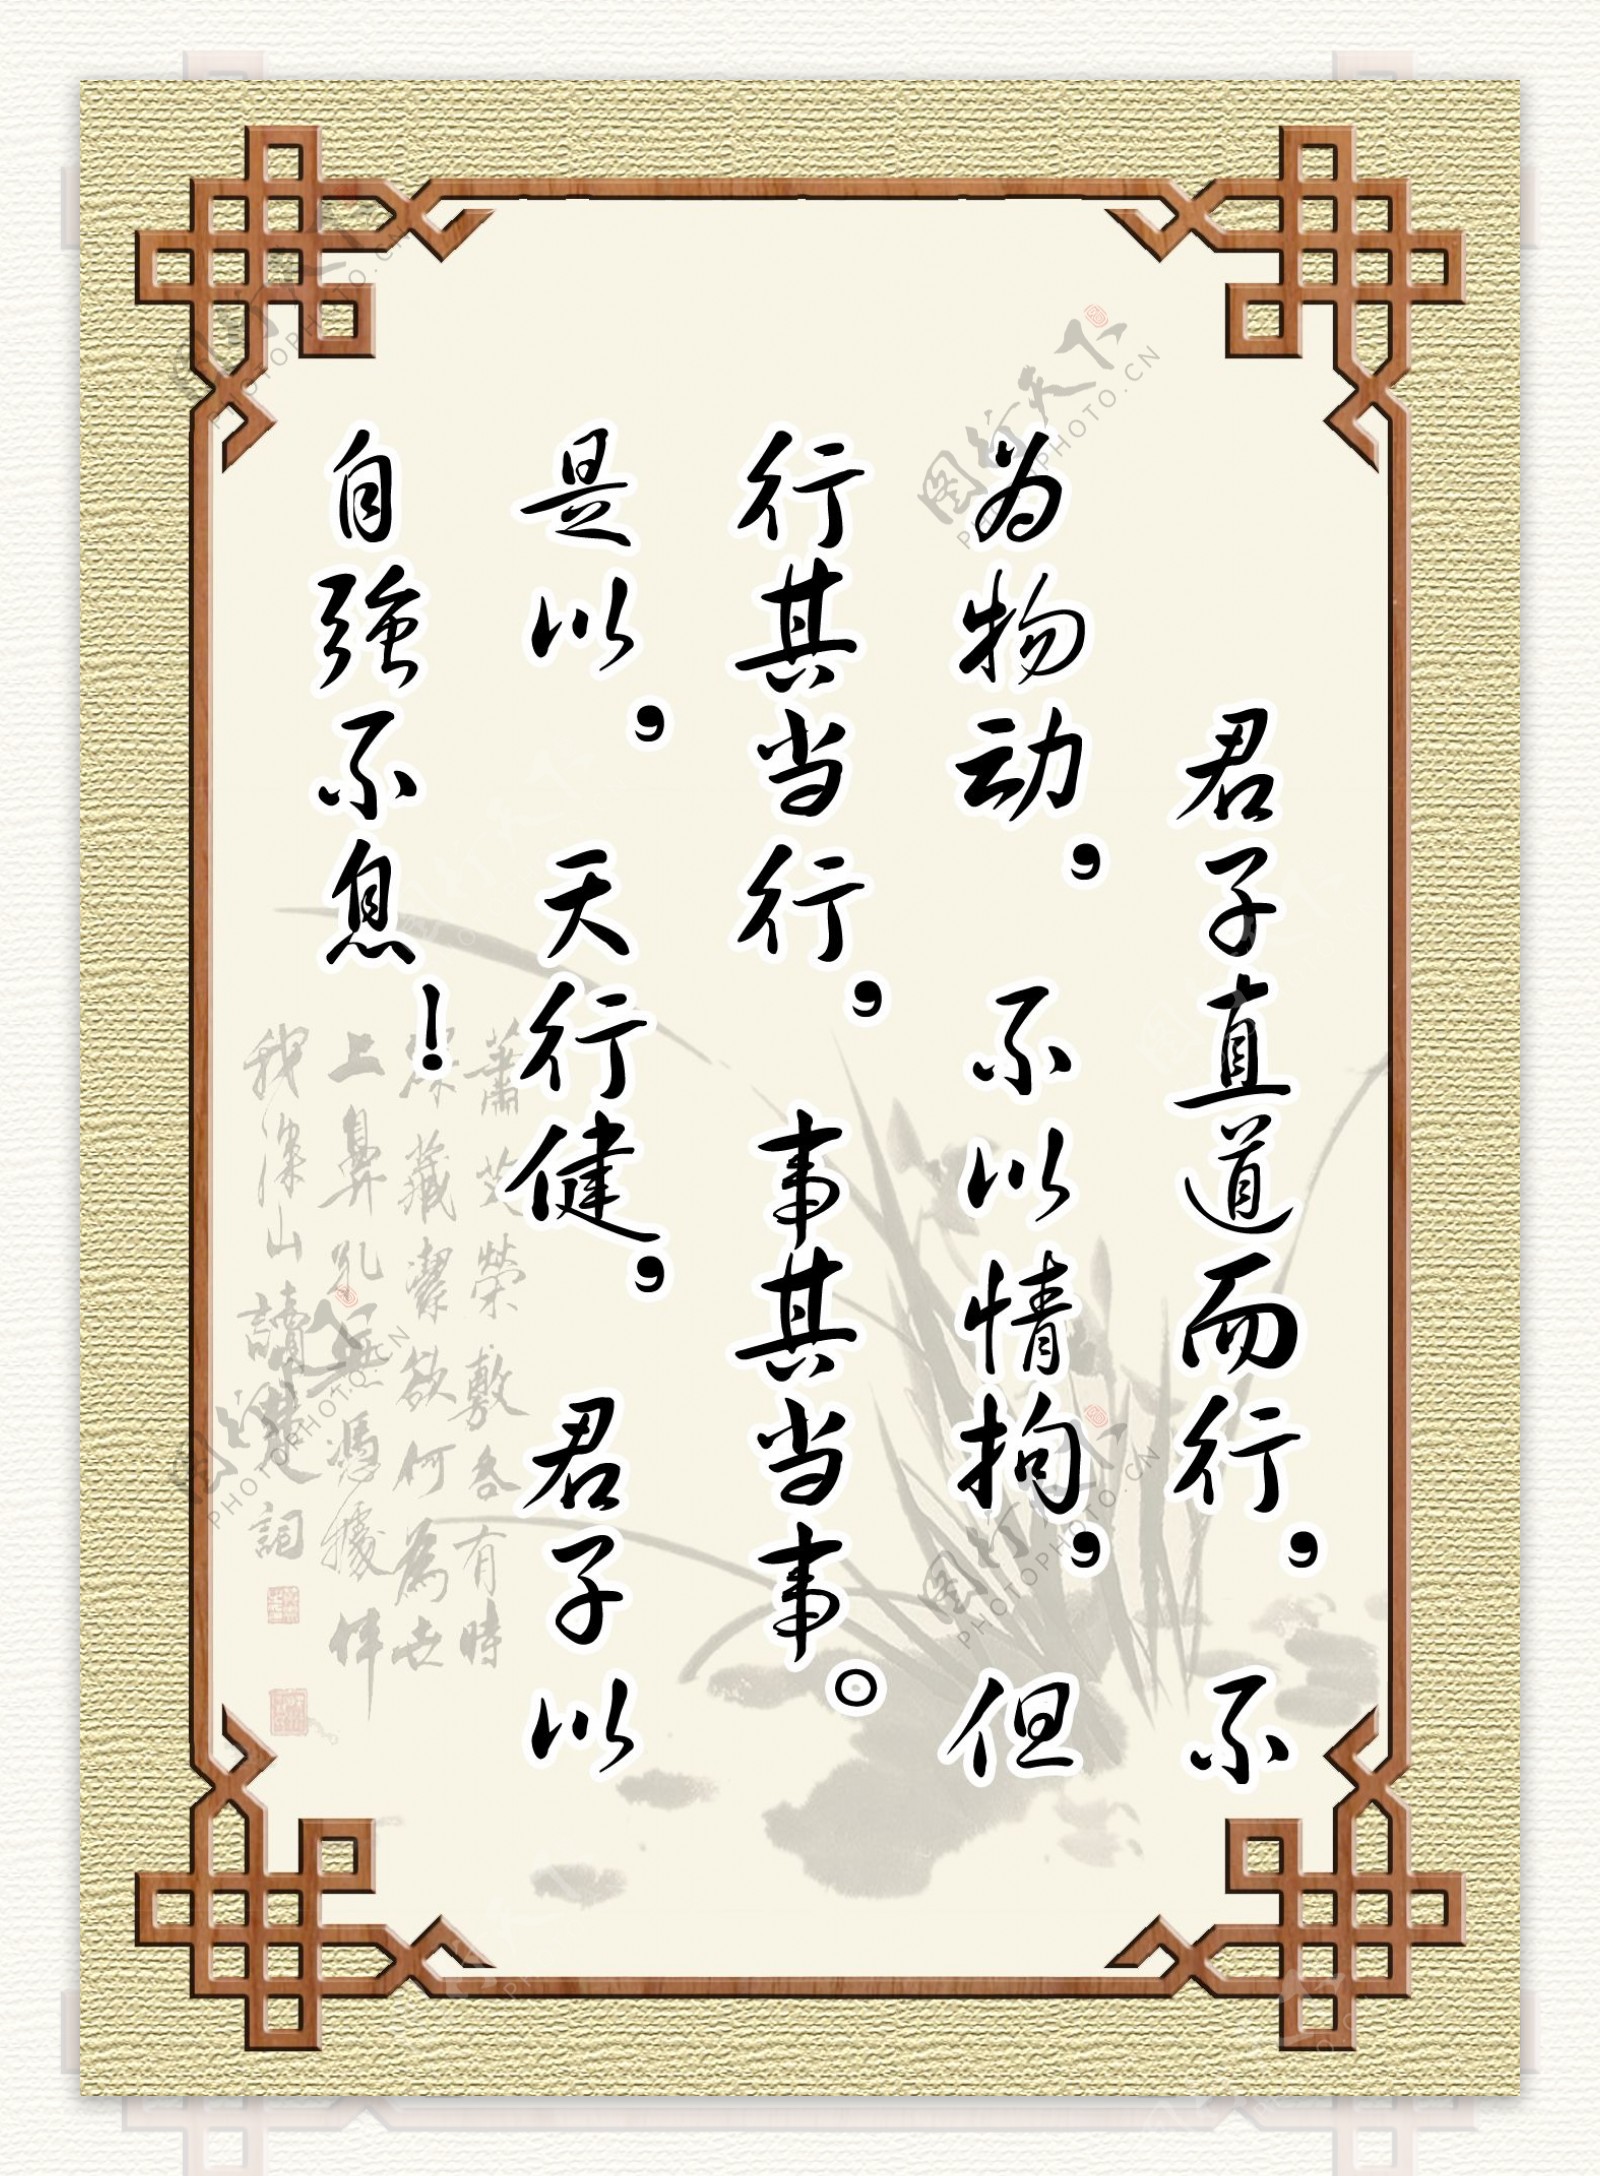 君子直道而行，不
为物动，不以情拘，但
行其当行，事其当事。
是以，天行健，君子以
自强不息！
蕭艾榮敷各有時
深藏潔欲何為世
上鼻孔無憑據
我深山讀楚詞
图行天下
PHOTOPHOTO.CN